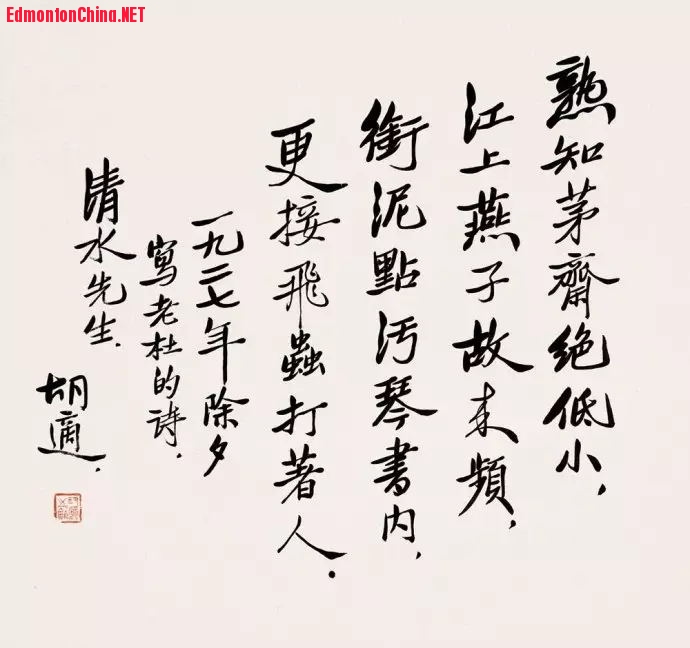 EdmontonChina.NET
熟知茅齋絶低小，
江上燕子故来頻，
銜泥點汚琴書内，
更接飛蟲打著人．
一九二七年除夕
寫老杜的诗．
清水先生．
胡適．